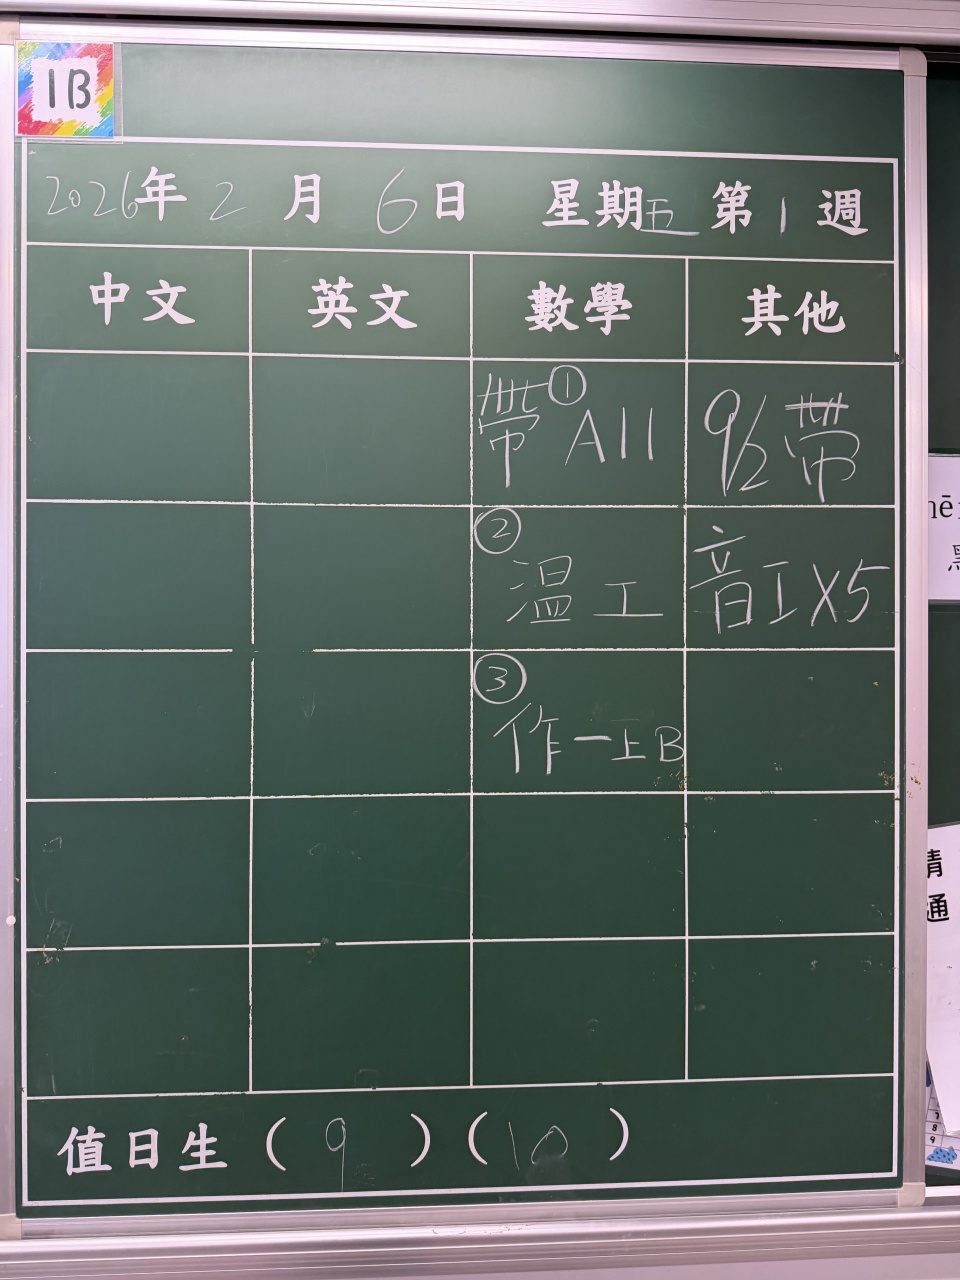 1B
2026年 2 月 6 日 星期五 第 1 週
中文 英文 數學 其他
① 帶 A11 9/2 帶
② 温工 音工X5
③ 作一上B
值日生 ( 9 ) ( 10 )
清
通
7
8
9